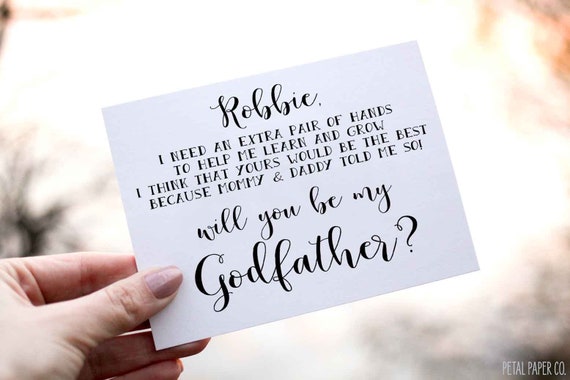 Robbie,
I NEED AN EXTRA PAIR OF HANDS
TO HELP ME LEARN AND GROW
I THINK THAT YOURS WOULD BE THE BEST
BECAUSE MOMMY & DADDY TOLD ME SO!
will you be my
Godfather?
PETAL PAPER CO.